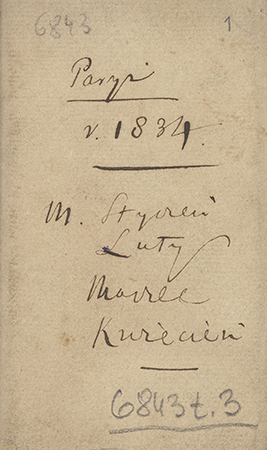 6843 1
Paryż
r. 1834.
M. Styczeń
Luty
Marzec
Kwiecień
6843 t. 3